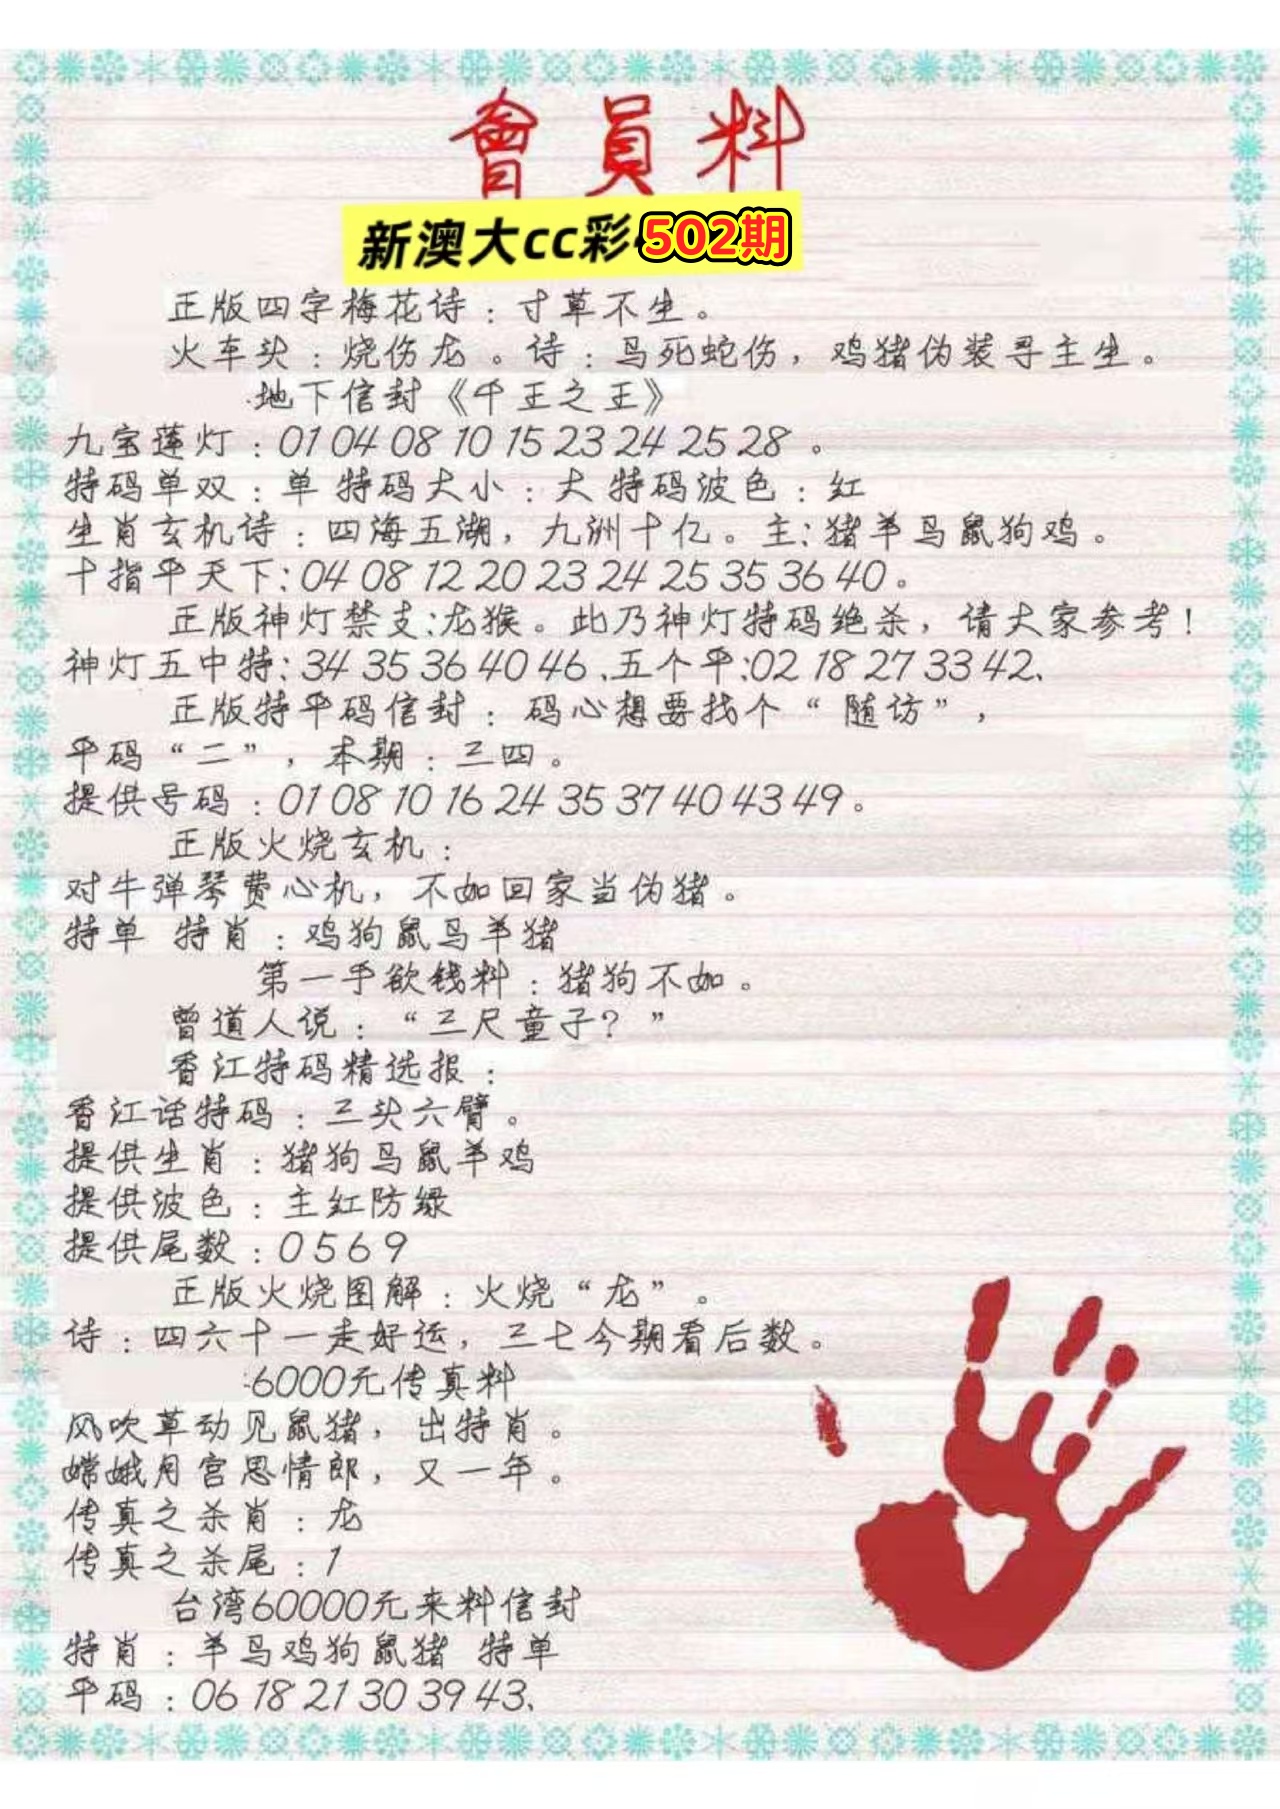 會員料
新澳大cc彩502期
正版四字梅花诗：寸草不生。
火车头：烧伤龙。诗：鸟死蛇伤，鸡猪伪装寻主生。
地下信封《千王之王》
九宝莲灯：01 04 08 10 15 23 24 25 28 。
特码单双：单 特码大小：大 特码波色：红
生肖玄机诗：四海五湖，九洲十亿。主:猪羊马鼠狗鸡。
十指平天下:04 08 12 20 23 24 25 35 36 40。
正版神灯禁支:龙猴。此乃神灯特码绝杀，请大家参考!
神灯五中特:34 35 36 40 46、五个平:02 18 27 33 42、
正版特平码信封：码心想要找个“随访”，
平码“二”，本期：三四。
提供号码：01 08 10 16 24 35 37 40 43 49。
正版火烧玄机：
对牛弹琴费心机，不如回家当伪猪。
特单 特肖：鸡狗鼠马羊猪
第一手欲钱料：猪狗不如。
曾道人说：“三尺童子？”
香江特码精选报：
香江话特码：三头六臂。
提供生肖：猪狗马鼠羊鸡
提供波色：主红防绿
提供尾数：0 5 6 9
正版火烧图解：火烧“龙”。
诗：四六十一走好运，三七今期看后数。
6000元传真料
风吹草动见鼠猪，出特肖。
嫦娥月宫思情郎，又一年。
传真之杀肖：龙
传真之杀尾：1
台湾60000元来料信封
特肖：羊马鸡狗鼠猪 特单
平码：06 18 21 30 39 43、